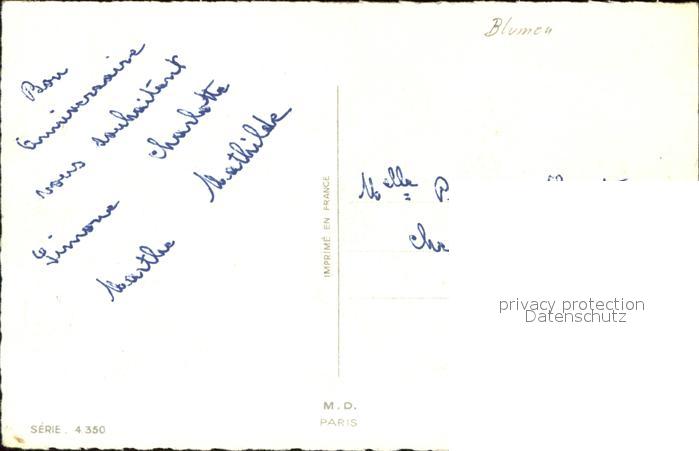 Blumen
Bon
Anniversaire
vous souhaitent
Charlotte
Mathilde
Simone
Marthe
Melle
IMPRIMÉ EN FRANCE
privacy protection
Datenschutz
M. D.
PARIS
SÉRIE. 4.350